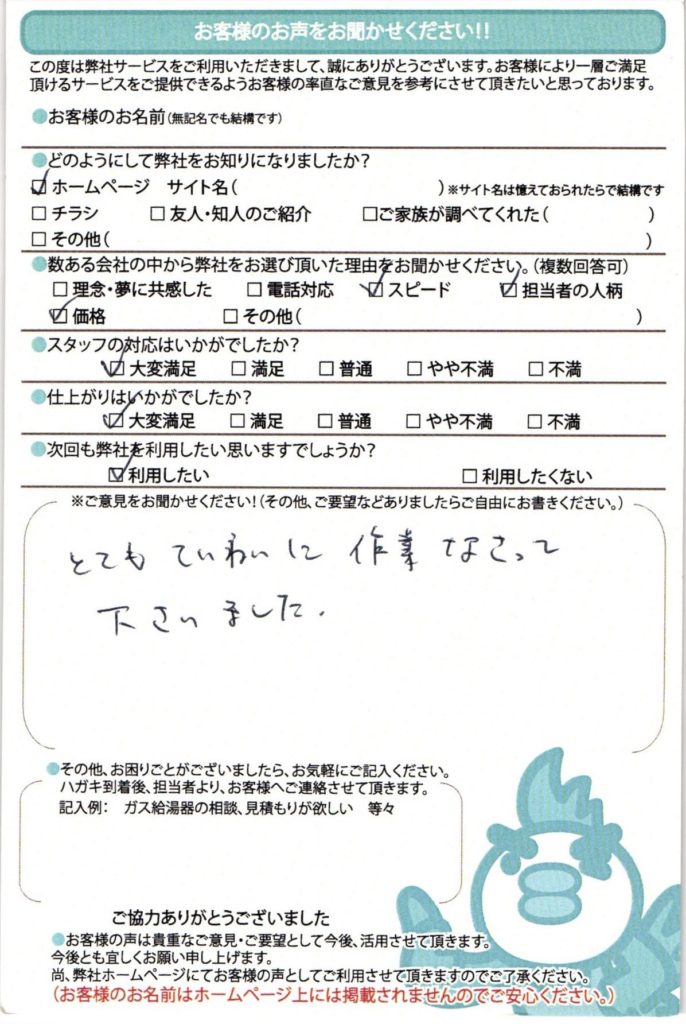 お客様のお声をお聞かせください!!
この度は弊社サービスをご利用いただきまして、誠にありがとうございます。お客様により一層ご満足
頂けるサービスをご提供できるようお客様の率直なご意見を参考にさせて頂きたいと思っております。
●お客様のお名前(無記名でも結構です)
●どのようにして弊社をお知りになりましたか?
☑ホームページ サイト名( )※サイト名は憶えておられたらで結構です
□チラシ □友人・知人のご紹介 □ご家族が調べてくれた( )
□その他( )
●数ある会社の中から弊社をお選び頂いた理由をお聞かせください。(複数回答可)
□理念・夢に共感した □電話対応 ☑スピード ☑担当者の人柄
☑価格 □その他( )
●スタッフの対応はいかがでしたか?
☑大変満足 □満足 □普通 □やや不満 □不満
●仕上がりはいかがでしたか?
☑大変満足 □満足 □普通 □やや不満 □不満
●次回も弊社を利用したい思いますでしょうか?
☑利用したい □利用したくない
※ご意見をお聞かせください!(その他、ご要望などありましたらご自由にお書きください。)
とても ていねいに 作業 なさって
下さいました.
●その他、お困りごとがございましたら、お気軽にご記入ください。
ハガキ到着後、担当者より、お客様へご連絡させて頂きます。
記入例: ガス給湯器の相談、見積もりが欲しい 等々
ご協力ありがとうございました
●お客様の声は貴重なご意見・ご要望として今後、活用させて頂きます。
今後とも宜しくお願い申し上げます。
尚、弊社ホームページにてお客様の声としてご利用させて頂きますのでご了承ください。
(お客様のお名前はホームページ上には掲載されませんのでご安心ください。)